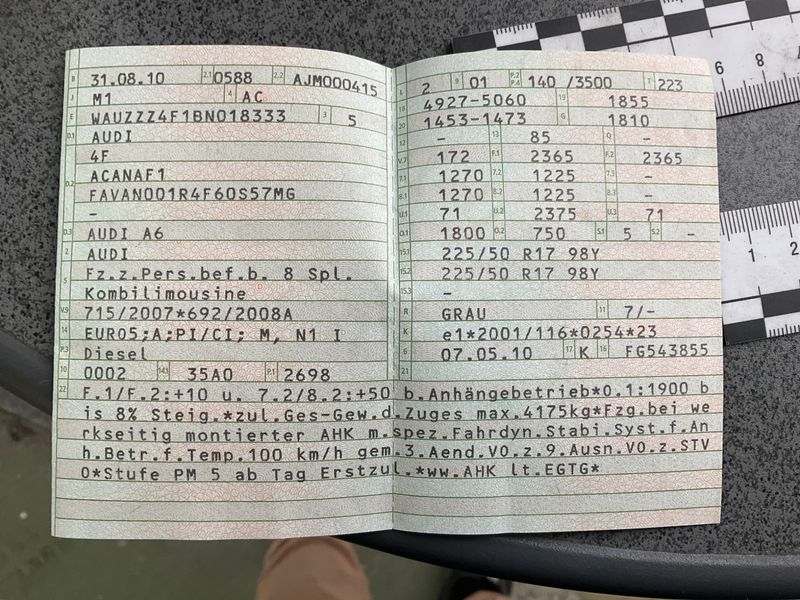 B 31.08.10 2.1 0588 2.2 AJM000415
J M1 4 AC
E WAUZZZ4F1BN018333 3 5
D.1 AUDI
4F
D.2 ACANAF1
FAVAN001R4F60S57MG
-
D.3 AUDI A6
2 AUDI
5 Fz.z.Pers.bef.b. 8 Spl.
Kombilimousine
V.9 715/2007*692/2008A
14 EURO5;A;PI/CI; M, N1 I
P.3 Diesel
10 0002 14.1 35A0 P.1 2698
L 2 9 01 P.2 P.4 140 /3500 T 223
18 4927-5060 19 1855
20 1453-1473 G 1810
12 - 13 85 Q -
V.7 172 F.1 2365 F.2 2365
7.1 1270 7.2 1225 7.3 -
8.1 1270 8.2 1225 8.3 -
U.1 71 U.2 2375 U.3 71
O.1 1800 O.2 750 S.1 5 S.2 -
15.1 225/50 R17 98Y
15.2 225/50 R17 98Y
15.3 -
R GRAU 11 7/-
K e1*2001/116*0254*23
6 07.05.10 17 K 16 FG543855
21
22 F.1/F.2:+10 u. 7.2/8.2:+50 b.Anhängebetrieb*0.1:1900 b
is 8% Steig.*zul.Ges-Gew.d.Zuges max.4175kg*Fzg.bei we
rkseitig montierter AHK m.spez.Fahrdyn.Stabi.Syst.f.An
h.Betr.f.Temp.100 km/h gem.3.Aend.VO.z.9.Ausn.VO.z.STV
O*Stufe PM 5 ab Tag Erstzul.*ww.AHK lt.EGTG*
6 8
1 2